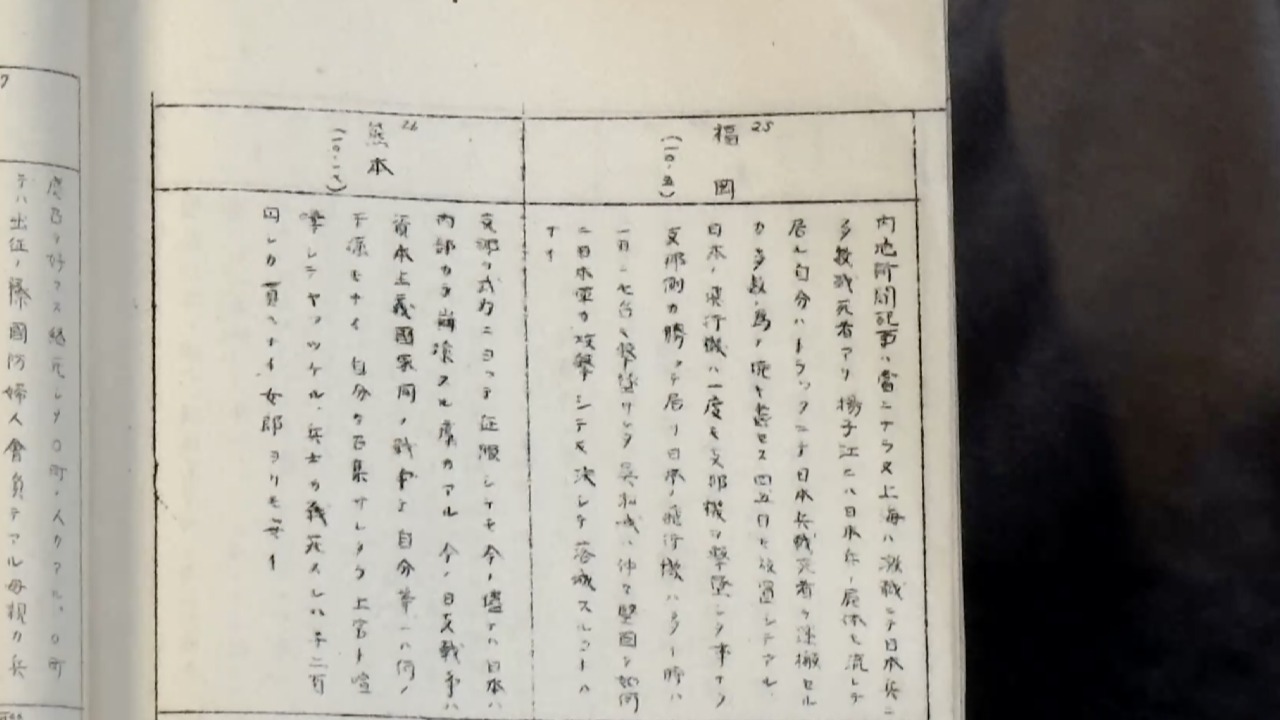 25
福岡
(一〇・五)
内地所聞記事ハ當ニナラヌ上海ハ激戦シテ日本兵ニ
多数戦死者アリ 揚子江ニハ日本兵ノ屍体モ流レテ
居ル自分ハトラックニテ日本兵戦死者ヲ運搬セル
カ多数ノ為ノ焼キ盡セス四五日モ放置シテアル
日本ノ飛行機ハ一度モ支那機ヲ撃墜シタ事ナク
支那側カ勝ッテ居リ日本ノ飛行機ハ多イ時ハ
一日ニ七台モ撃墜サレタ 呉淞城ハ仲々堅固デ如何
ニ日本軍カ攻撃シテモ決シテ落城スルコトハ
ナイ
26
熊本
支那ヲ武力ニヨッテ征服シテモ今ノ儘テハ日本ハ
内部カラ崩壊スル虞カアル 今ノ日支戦争ハ
資本主義國家間ノ戦争デ自分等ハ何ノ
干係モナイ 自分カ召集サレタラ上官ト喧
嘩シテヤッツケル、兵士カ戦死スレハ千二百
円シカ貰ヘナイ女郎ヨリモ安イ
テハ出征ノ際國防婦人會員テアル母親カ兵